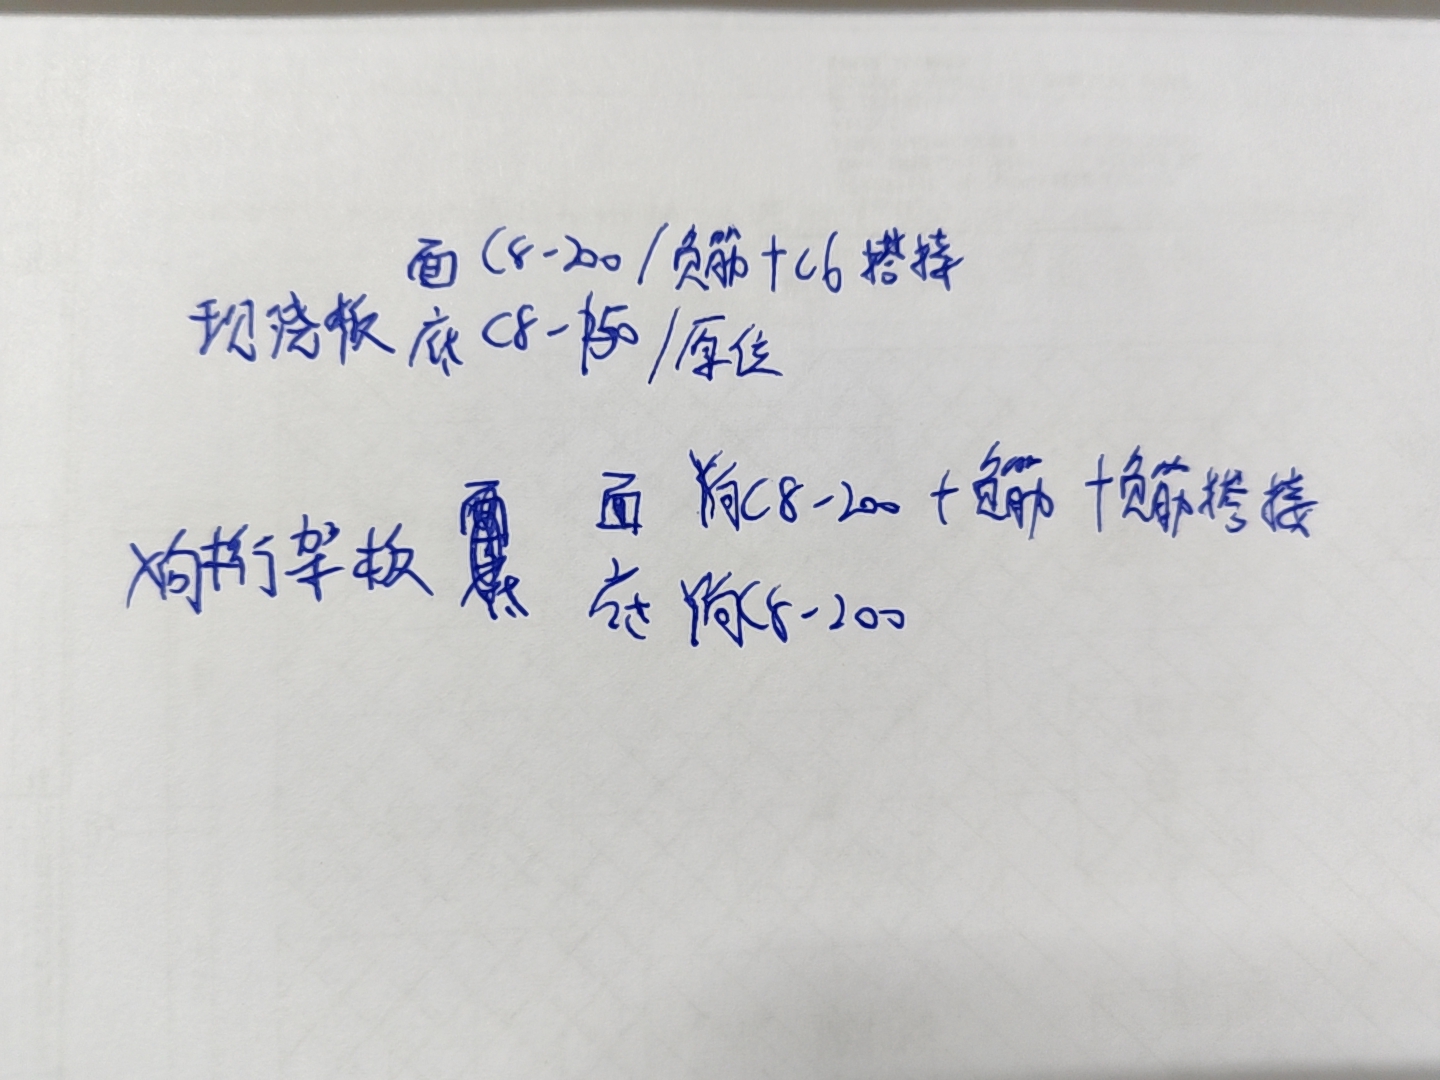 面 C8-200/负筋+C6搭接
现浇板 底 C8-150/原位
面 双向C8-200+负筋+负筋搭接
双向桁架板
底 双向C8-200